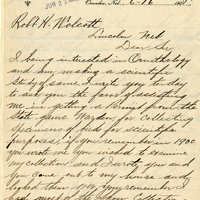 JUN 23
Omaha, Neb, 6-16 1901
Robt H. Wolcott
Lincoln Neb.
Dear Sir
I being intrested in Ornithology
and am making a scientific
study of same. I write you to day
to ask you the favor of assisting
me in getting a Permit from the
State game Warden for collecting
Specimens of birds for scientific
purposes, if you remember in 1900
you wrote me you wished to examine
my collection and I wrote you and
you came out to my house and
looked them over, you remember I
had most of